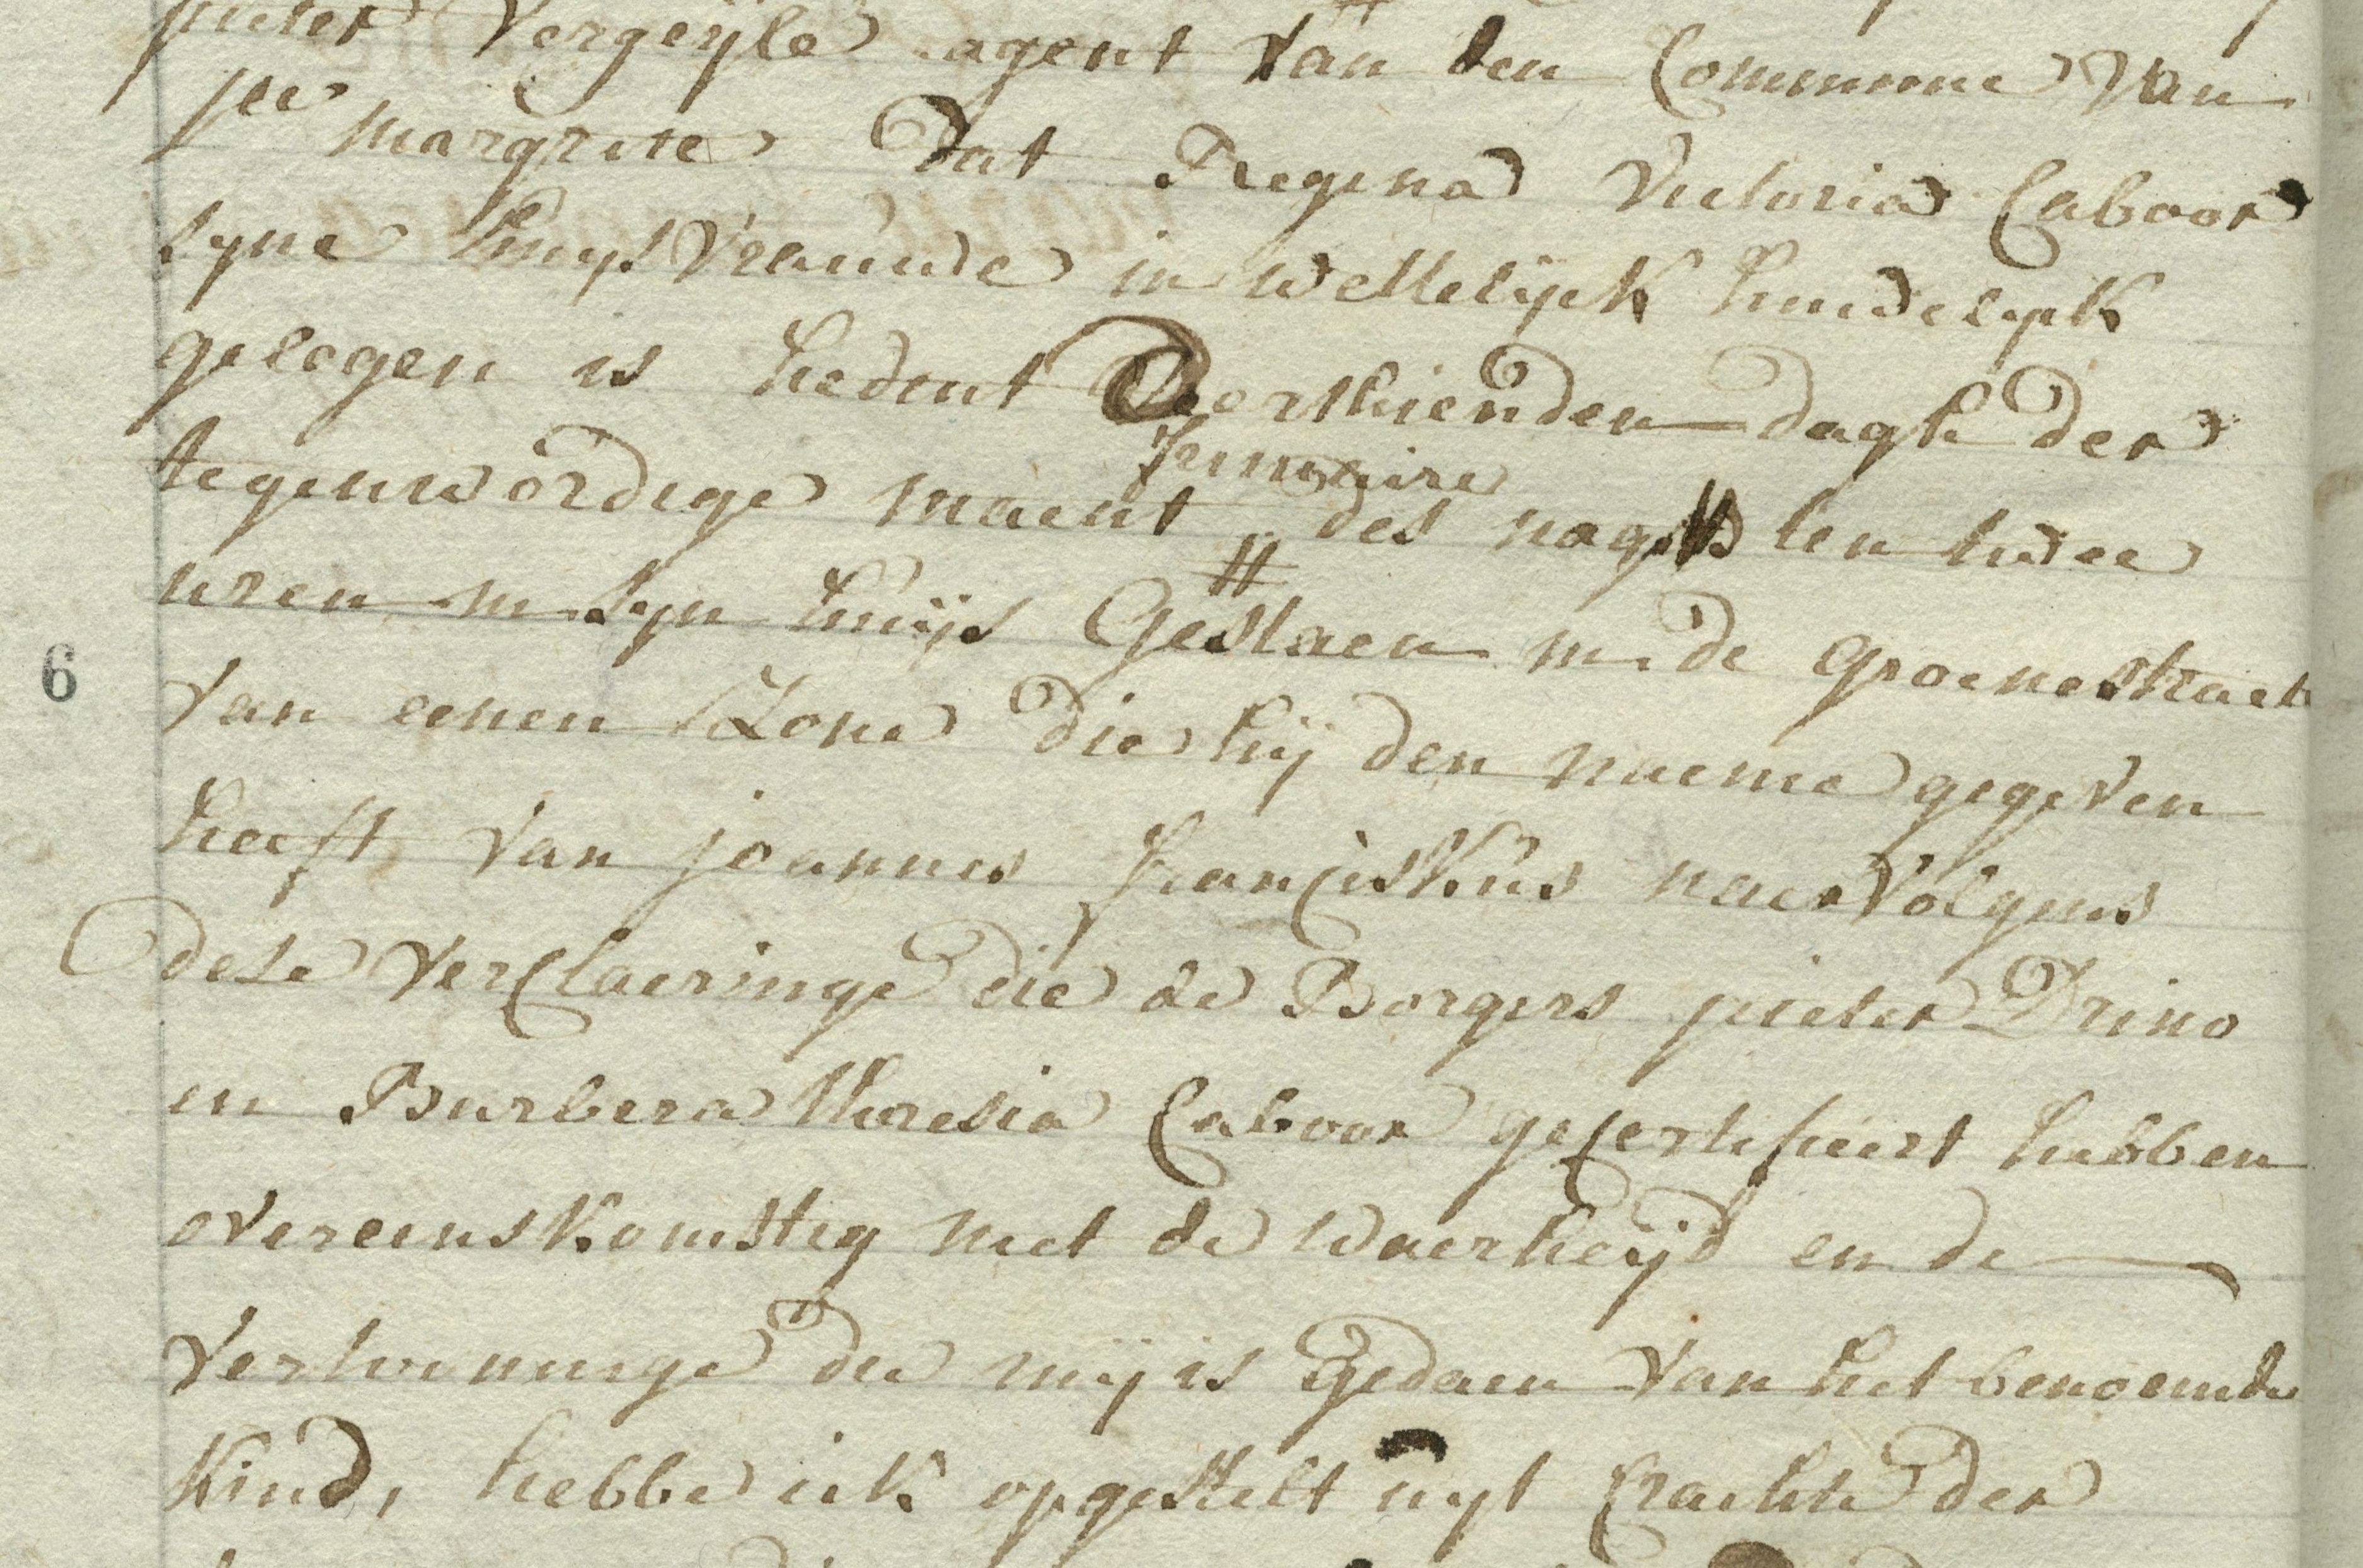 pieter Vergeyle agent van den Commune van
Ste margrite dat Regina Victoria Caboor
syne huysvrauwe in wettelijck huwelyck
gelegen is hedent veerthienden dagh der
frimaire
tegenwordige maent des nagts ten twee
uren in syn huijs Gestaen in de groenestraete
van eenen Zone die hij den naeme gegeven
heeft van joannes franciskus naervolgens
dese verclaeringe die de Borgers pieter Drino
6
en Barbera theresia Caboor gecertifieert hebben
overeenskomstig met de waerheijd en de
verthooninge die mij is gedaen van het benoemde
kind, hebbe ick opgestelt uyt crachte der